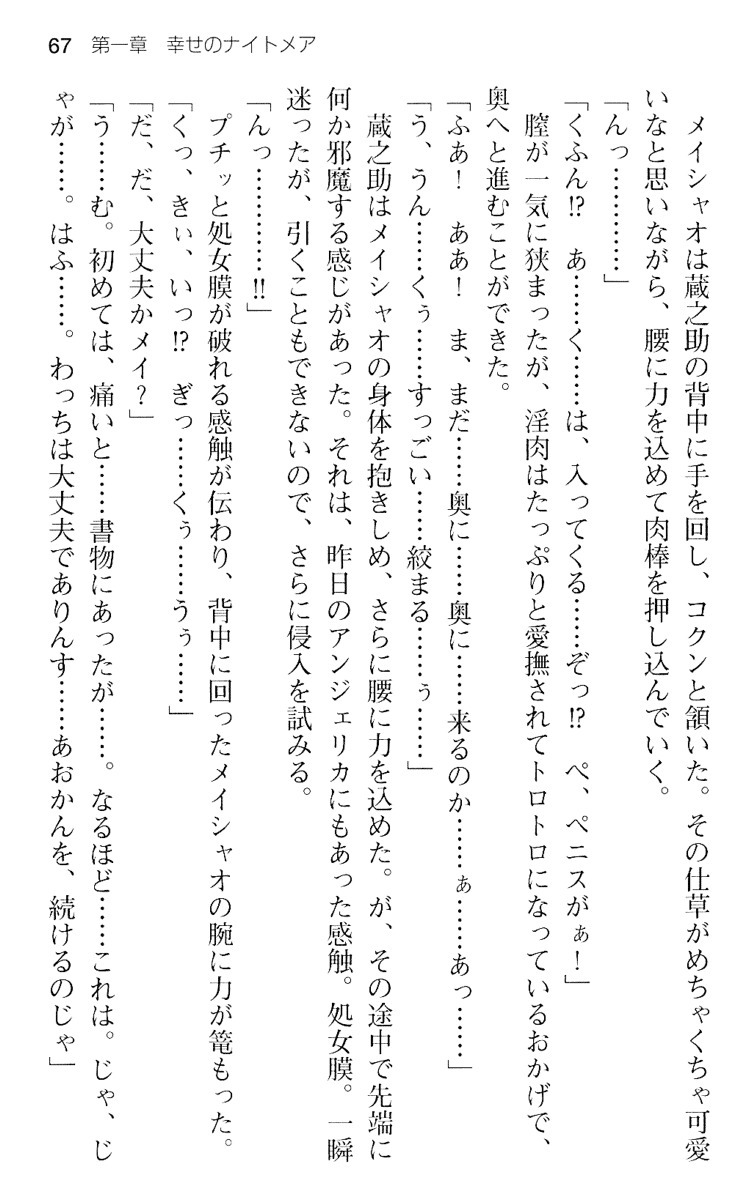 67　第一章　幸せのナイトメア
　メイシャオは蔵之助の背中に手を回し、コクンと頷いた。その仕草がめちゃくちゃ可愛
いなと思いながら、腰に力を込めて肉棒を押し込んでいく。
「んっ…………」
「くふん!?　あ……く……は、入ってくる……ぞっ!?　ぺ、ペニスがぁ！」
　膣が一気に狭まったが、淫肉はたっぷりと愛撫されてトロトロになっているおかげで、
奥へと進むことができた。
「ふぁ！　ああ！　ま、まだ……奥に……奥に……来るのか……ぁ……あっ……」
「う、うん……くぅ……すっごい……絞まる……ぅ……」
　蔵之助はメイシャオの身体を抱きしめ、さらに腰に力を込めた。が、その途中で先端に
何か邪魔する感じがあった。それは、昨日のアンジェリカにもあった感触。処女膜。一瞬
迷ったが、引くこともできないので、さらに侵入を試みる。
「んっ…………!!」
　プチッと処女膜が破れる感触が伝わり、背中に回ったメイシャオの腕に力が篭もった。
「くっ、きぃ、いっ!?　ぎっ……くぅ……うぅ……」
「だ、だ、大丈夫かメイ？」
「う……む。初めては、痛いと……書物にあったが……。なるほど……これは。じゃ、じ
ゃが……。はふ……。わっちは大丈夫でありんす……あおかんを、続けるのじゃ」